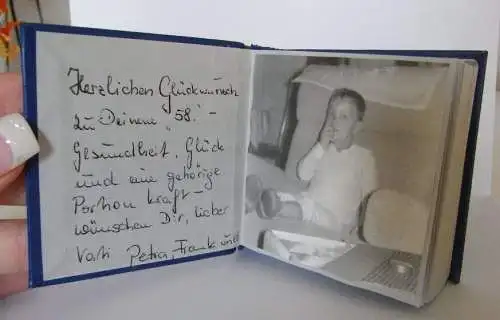 Herzlichen Glückwunsch
zu Deinem „58." -
Gesundheit, Glück
und eine gehörige
Portion Kraft -
wünschen Dir, lieber
Vati Petra, Frank und